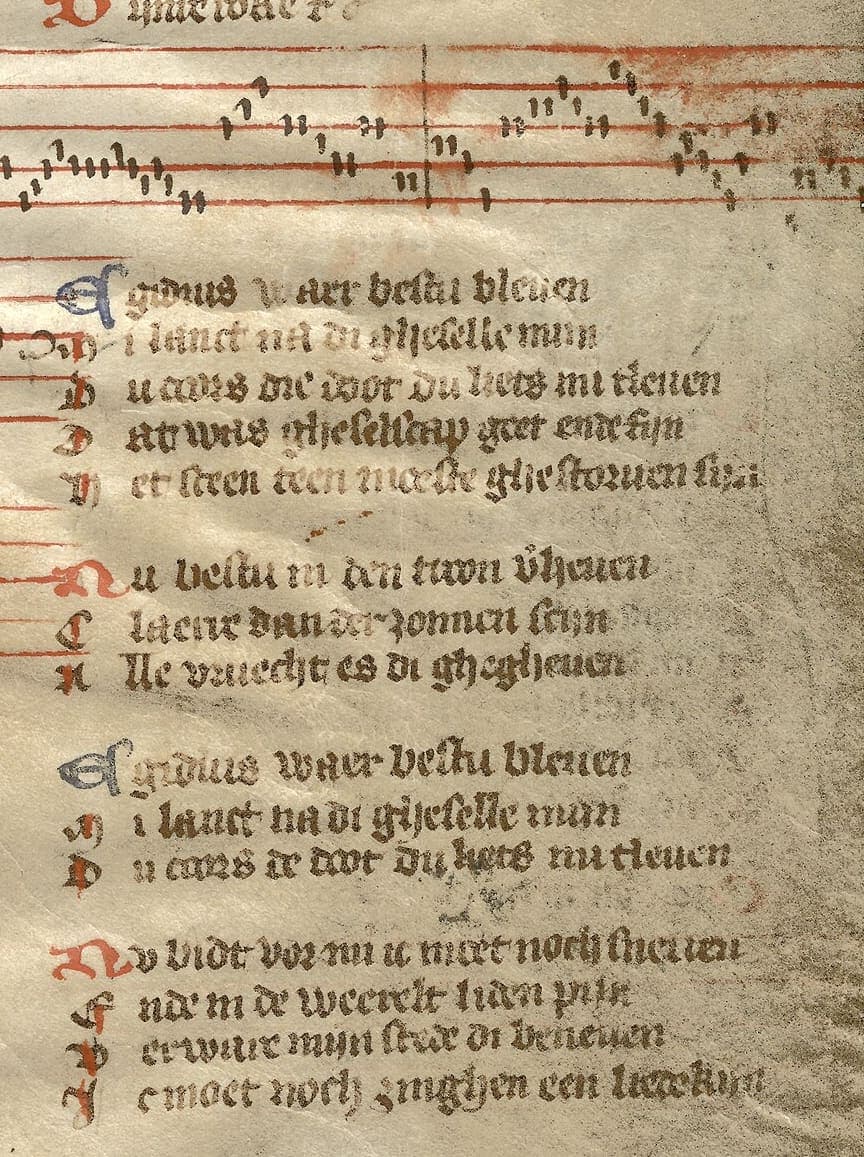 Egidius waer bestu bleuen
Mi lanct na di gheselle mijn
Du coors die doot du liets mi tleuen
Dat was gheselscap goet ende fijn
Het sceen teen moeste ghestoruen sijn
Nu bestu in den troon v̂heuen
Claerre dan der zonnen scijn
Alle vruecht es di ghegheuen
Egidius waer bestu bleuen
Mi lanct na di gheselle mijn
Du coors de doot du liets mi tleuen
Nv bidt vor mi ic moet noch sneuen
Ende in de weerelt liden pijn
Verware mijn stede di beneuen
Ic moet noch zinghen een liedekijn